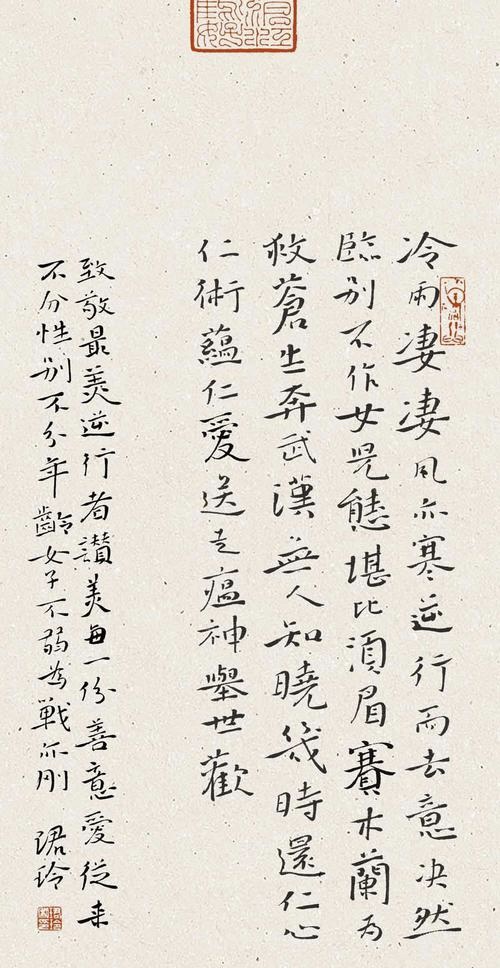 冷雨凄凄风亦寒逆行而去意决然
臨别不作女児態堪比須眉賽木蘭为
救蒼生奔武漢無人知曉幾時還仁心
仁術蘊仁愛送走瘟神舉世歡
致敬最美逆行者讚美每一份善意愛從来
不分性别不分年齡女子不弱为戰亦剛 珺玲